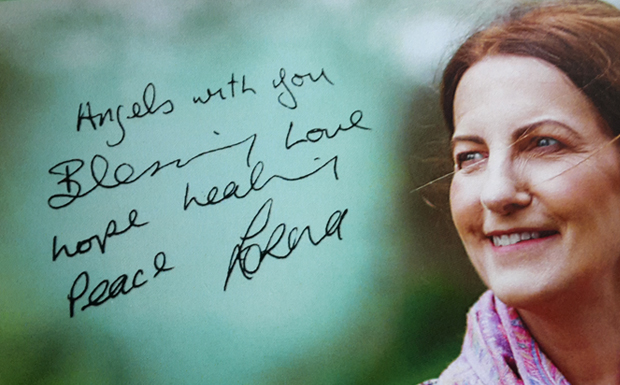 Angels with you
Blessing Love
hope healing
Peace Lorna